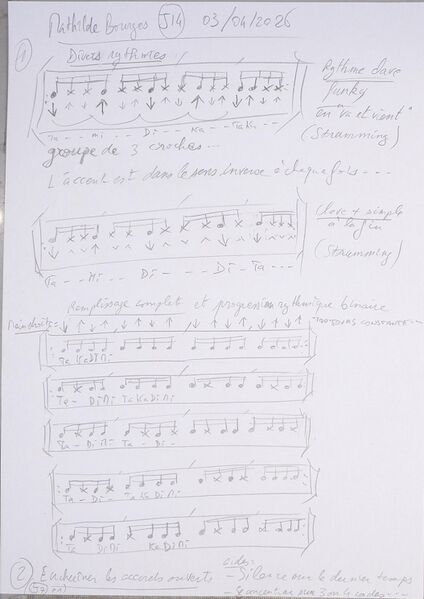 Mathilde Bourges J14 03/04/2026
1 Divers rythmes
Rythme clave
funky
"en va et vient"
(Strumming)
Ta - - - Mi - - Di - - - Ka - - TaKa
groupe de 3 croches...
L'accent est dans le sens inverse à chaque fois - - -
Clave + simple
à la fin
(Strumming)
Ta - - Mi - - Di - - - Di - Ta - - -
Remplissage complet et progression rythmique binaire
Main droite
Ta Ka Di Mi
Ta - Di Mi Ta Ka Di Mi
Ta - Di Mi Ta - Di -
Ta - Di - Ta Ka Di Mi
Ta Di Mi Ka Di Mi
2 Enchaîner les accords ouverts aides: - Silence sur le dernier temps